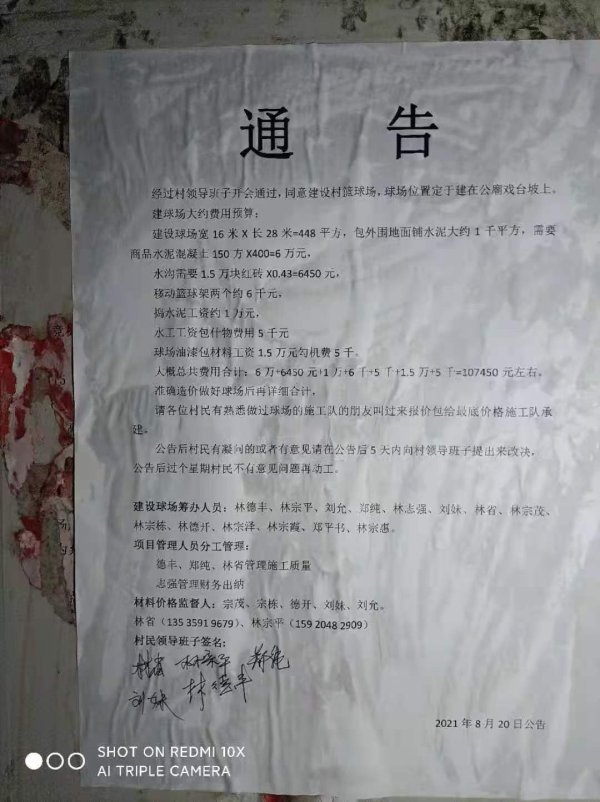 通 告
经过村领导班子开会通过，同意建设村篮球场，球场位置定于建在公廟戏台坡上。
建球场大约费用预算；
建设球场宽 16 米 X 长 28 米=448 平方，包外围地面铺水泥大约 1 千平方，需要
商品水泥混凝土 150 方 X400=6 万元，
水沟需要 1.5 万块红砖 X0.43=6450 元，
移动篮球架两个约 6 千元，
捣水泥工资约 1 万元，
水工工资包什物费用 5 千元
球场油漆包材料工资 1.5 万元勾机费 5 千。
大概总共费用合计：6 万+6450 元+1 万+6 千+5 千+1.5 万+5 千=107450 元左右。
准确造价做好球场后再详细合计，
请各位村民有熟悉做过球场的施工队的朋友叫过来报价包给最底价格施工队承
建。
公告后村民有凝问的或者有意见请在公告后 5 天内向村领导班子提出来改决，
公告后过个星期村民不有意见问题再动工。
建设球场筹办人员：林德丰、林宗平、刘允、郑纯、林志强、刘妹、林省、林宗茂、
林宗栋、林德开、林宗泽、林宗霞、郑平书、林宗惠。
项目管理人员分工管理：
德丰、郑纯、林省管理施工质量
志强管理财务出纳
材料价格监督人：宗茂、宗栋、德开、刘妹、刘允。
林省（135 3591 9679）、林宗平（159 2048 2909）
村民领导班子签名：
林省 林宗平 郑纯
刘妹 林德丰
2021 年 8 月 20 日公告
SHOT ON REDMI 10X
AI TRIPLE CAMERA